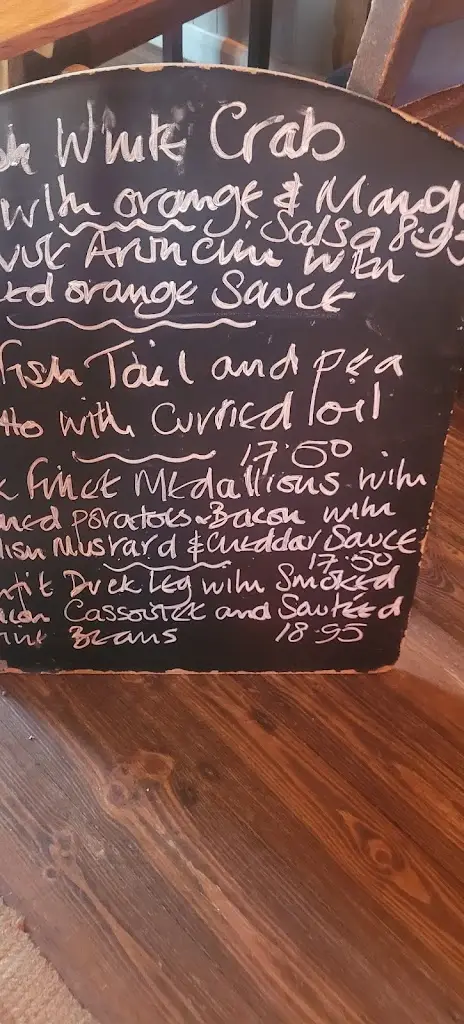 White Crab
with orange & Mang
Salsa 8.95
Arincini with
orange Sauce
fish Tail and pea
tto with Curried oil
17.50
fillet Medallions with
potatoes Bacon with
lish Mustard & Cheddar Sauce
17.50
Duck leg with Smoked
Cassoulet and Sautéed
Beans 18.95